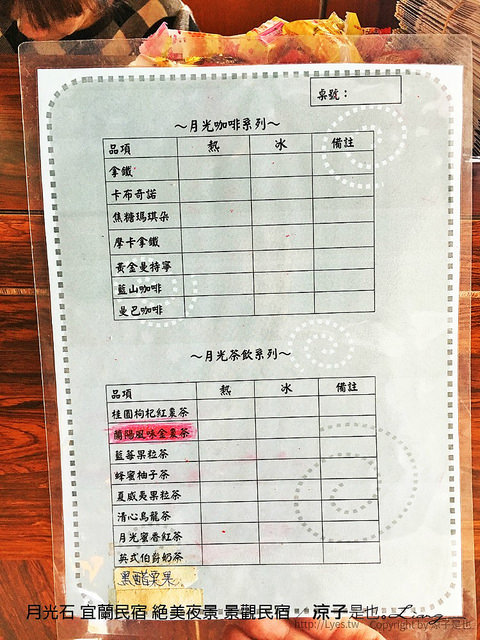 桌號：
～月光咖啡系列～
品項 熱 冰 備註
拿鐵
卡布奇諾
焦糖瑪琪朵
摩卡拿鐵
黃金曼特寧
藍山咖啡
曼巴咖啡
～月光茶飲系列～
品項 熱 冰 備註
桂圓枸杞紅棗茶
蘭陽風味金棗茶
藍莓果粒茶
蜂蜜柚子茶
夏威夷果粒茶
清心烏龍茶
月光蜜香紅茶
英式伯爵奶茶
黑醋栗果
月光石 宜蘭民宿 絕美夜景 景觀民宿 - 涼子是也
http://Lyes.tw Copyright by 涼子是也